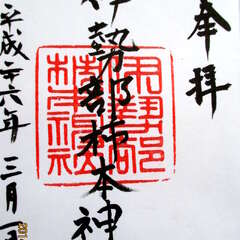 奉拝
伊勢部柿本神
平成二十六年三月一